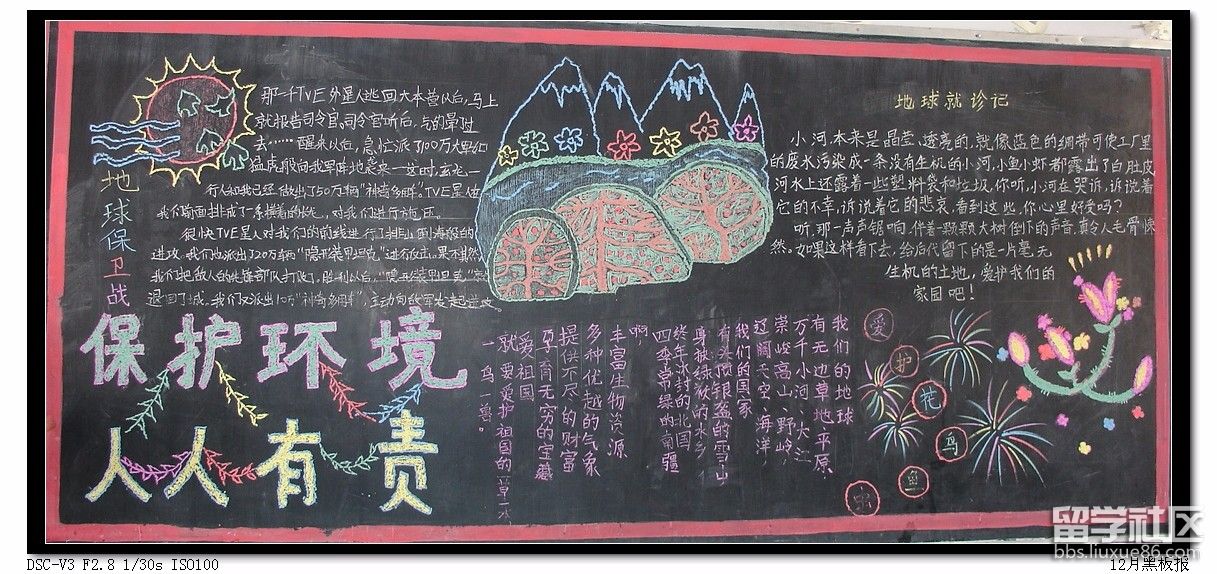 地球保卫战
那一个TVE外星人逃回大本营以后,马上
就报告司令官。司令官听后,气的晕过
去……醒来以后,急忙派了100万大军如
猛虎般向我军阵地袭来
行人
我们已经做出了50万辆“神奇多
TVE星人
我们
对我们进行
很快TVE星人对我们的前线进行了排山倒海般的
进攻,我们也派出了20万辆“隐形装甲坦克”进行反击。果不其然
我们把敌人的先锋部队打
胜利以后,“隐形装甲坦克”
退回
我们又派出10万“神奇多
主动向敌军发起进攻。
保护环境
人人有责
地球就诊记
小河本来是晶莹、透亮的,就像蓝色的绸带可使工厂里
的废水污染成一条没有生机的小河,小鱼小虾都露出了白肚皮
河水上还露着一些塑料袋和垃圾,你听,小河在哭诉,诉说着
它的不幸,诉说着它的悲哀,看到这些,你心里好受吗?
听,那一声声锯响,伴着一颗颗大树倒下的声音,真令人毛骨悚
然。如果这样看下去,给后代留下的是一片毫无
生机的土地,爱护我们的
家园吧!
我们的地球
有无边草地、平原,
万千小河、大江
崇峻高山、野岭,
辽阔天空、海洋,
我们的国家
有头顶银盔的雪山
身披绿纱的水乡
终年冰封的北国
四季常绿的南疆
啊,
丰富生物资源
多种优越的气象
提供不尽的财富
孕育无穷的宝藏
爱祖国
就要爱护祖国的一草一木
一鸟一兽。
爱
护
花
鸟
鱼
虫
留学社区
bbs.liuxue86.com
DSC-V3 F2.8 1/30s ISO100
12月黑板报